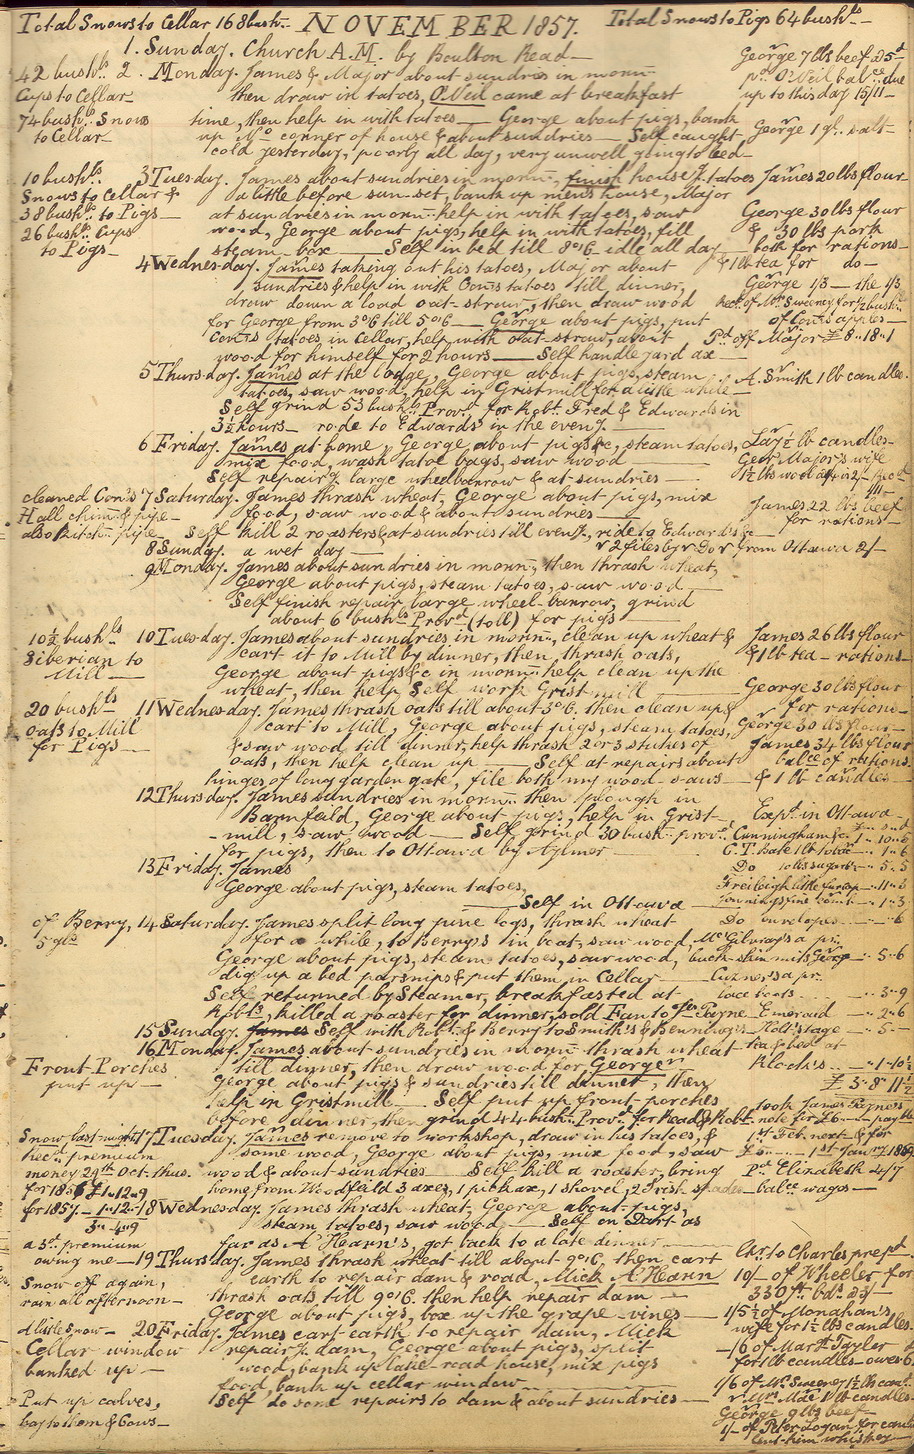 Total Snows to Cellar 168 bush.. NOVEMBER 1857. Total Snows to Pigs 64 bushls
1. Sunday. Church A.M. by Boulton Read
George 7 lbs beef 25d
42 bushls 2. Monday. James & Major about sundries in morng
pd O'Neil balce due
Cups to Cellar then draw in tatoes, O'Neil came at breakfast
up to this day 15/11
74 bushls Snows time, then help in with tatoes — George about pigs, bank
to Cellar up No corner of house, & about sundries — Self caught
George 1 gl. salt
cold yesterday, poorly all day, very unwell going to bed
10 bushls 3 Tuesday. James about sundries in morng, finish house tatoes
James 20 lbs flour
Snows to Cellar & a little before sun-set, bank up men's house, Major
38 bushls to Pigs at sundries in morng help in with tatoes, saw
George 30 lbs flour
26 bushls Cups wood, George about pigs, help in with tatoes, fill
& 30 lbs pork
to Pigs steam-box — Self in bed till 8 o'c idle all day
both for rations
4 Wednesday. James taking out his tatoes, Major about
& 1 lb tea for do
sundries & help in with Cows tatoes till dinner,
George 1/3 — the 1/3
draw down a load oat-straw, then draw wood
Recd of Mr Sweeney for 1/2 bushl
for George from 3 o'c till 5 o'c — George about pigs, put
of Cows apples
Cows tatoes in Cellar, help with oat-straw, about
Pd off Major £8..18..1
wood for himself for 2 hours — Self handle yard ax
5 Thursday. James at the lodge, George about pigs, steam
A. Smith 1 lb candles
tatoes, saw wood, help in Gristmill for a little while
Self grind 53 bushls Provr for Robt Fred & Edwards in
3 1/2 hours rode to Edwards' in the eveng
6 Friday. James at home, George about pigs &c, steam tatoes,
Lay 1/2 lb candles
mix food, wash tatoe bags, saw wood
Geor Major's wife
Self repairg large wheelbarrow & at sundries
cleaned Cows 7 Saturday. James thrash wheat, George about pigs, mix
Hall chim & pipe food, saw wood & about sundries
James 22 lbs beef
for rations
also Kitchn pipe Self kill 2 roasters & at sundries till eveng, ride to Edwards &c
8 Sunday. a wet day
& 2 files by Dor from Ottawa 2/
9 Monday. James about sundries in morng, then thrash wheat,
George about pigs, steam tatoes, saw wood
Self finish repair large wheel-barrow, grind
about 6 bushls Provr (toll) for pigs
10 1/2 bushls 10 Tuesday. James about sundries in morng, clean up wheat &
James 26 lbs flour
Siberian to cart it to Mill by dinner, then thrash oats,
& 1 lb tea — rations
Mill George about pigs &c in morng help clean up the
wheat, then help Self work Grist mill
George 30 lbs flour
20 bushls 11 Wednesday. James thrash oats till about 3 o'c then clean up &
for rations
oats to Mill cart to Mill, George about pigs, steam tatoes,
George 30 lbs flour
for Pigs & saw wood till dinner, help thrash 2 or 3 stukes of
James 34 lbs flour
oats, then help clean up — Self at repairs about
balce of rations
hinges of long garden gate, file both my wood-saws
& 1 lb candles
12 Thursday. James sundries in morng then plough in
Barnfield, George about pigs, help in Grist-
Expd in Ottawa
mill, saw wood — Self grind 30 bush.. provr
Cunningham &c 1..10..6
for pigs, then to Ottawa by Aylmer
C. T. Bate 1 lb 1..6
13 Friday. James
Do 10 lbs sugar 5..5
George about pigs, steam tatoes,
11..3
Self in Ottawa
1..3
of Berry, 14 Saturday. James split long pine logs, thrash wheat
Do envelopes 6
5 gls for a while, to Berry's in boat, saw wood,
McGilvray's a pr.
George about pigs, steam tatoes, saw wood,
buck-skin mits, George 5..6
dig up a bed parsnips & put them in Cellar
Cuzner's a pr.
Self returned by Steamer, breakfasted at
lace boots 3..9
Robt's, killed a roaster for dinner, sold Fan to Jas Payne
Emerald 2..6
15 Sunday. James Self with Robt & Berry to Smith's &
Holt's stage 5
16 Monday. James about sundries in morng thrash wheat
tea & bed at
Front Porches till dinner, then draw wood for George
Klock's 1..10 1/2
put up George about pigs & sundries till dinner, then
£3..8..11 1/2
help in Gristmill — Self put up front-porches
took James Payne's
before dinner, then grind 44 bush.. Provr for Read & Robt
note for £6
Snow last night 17 Tuesday. James remove to workshop, draw in his tatoes, &
1st Feb. next & for
Recd premium some wood, George about pigs, mix food, saw
£5 1st Jany 1859
money 29th Oct. thus. wood & about sundries — Self kill a roaster, bring
Pd Elizabeth 4/7
for 1856 £1..12..9 home from Woodfield 3 axes, 1 pickax, 1 shovel, 2 Irish spades
balce wages
for 1857 1..12.. 18 Wednesday. James thrash wheat, George about pigs,
3..4..9 steam tatoes, saw wood — Self on Dart as
a 3rd premium far as A' Hearn's, got back to a late dinner
owing me 19 Thursday. James thrash wheat till about 9 o'c, then cart
to Charles
Snow off again, earth to repair dam & road, Mick A'Hearn
10/ of Wheeler for
rain all afternoon thrash oats till 9 o'c. then help repair dam
330 ft bds
George about pigs, box up the grape-vines
1/5 1/2 of Monahan's
A little Snow 20 Friday. James cart earth to repair dam, Mick
wife for 1 1/2 lbs candles
Cellar window repairg dam, George about pigs, split
-/6 of Mart Tayler
banked up wood, bank up lake road house, mix pigs
for 1 lb candles — owes 6
food, bank up cellar window
1/6 of Mr Sweeney 1 1/2 lbs
Put up calves, Self do some repairs to dam & about sundries
1 lb candles
hay to them & Cows
George 9 lbs beef
1/- of Peter Logan for
lent him whiskey